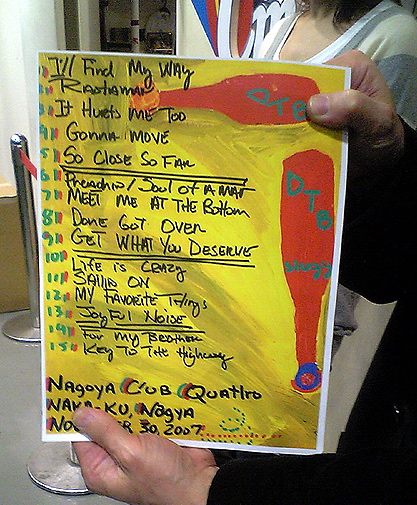 1) I'll Find My WAY
2) Rastaman
3) It Hurts Me Too
4) Gonna Move
5) So Close So Far
6) Preachin/Soul of a Man
7) MEET ME AT THE BOttom
8) Done Got Over
9) GET WHAT YOU DESERVE
10) LiFe is CRAZy
11) SAILING ON
12) MY FAVORITE THings
13) JOYFUL NOiSE
14) For My BROTHER
15) Key to The Highway
DTB
DTB
slugg
NAgoya Club QuAttro
NAKA-KU, NAgoya
NOVEMBER 30, 2007